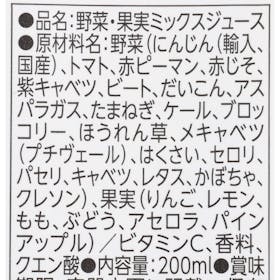 ●品名:野菜・果実ミックスジュース
●原材料名:野菜(にんじん(輸入、
国産)、トマト、赤ピーマン、赤じそ、
紫キャベツ、ビート、だいこん、アス
パラガス、たまねぎ、ケール、ブロッ
コリー、ほうれん草、メキャベツ
(プチヴェール)、はくさい、セロリ、
パセリ、キャベツ、レタス、かぼちゃ、
クレソン)、果実(りんご、レモン、
もも、ぶどう、アセロラ、パイン
アップル)／ビタミンC、香料、
クエン酸●内容量:200ml●賞味